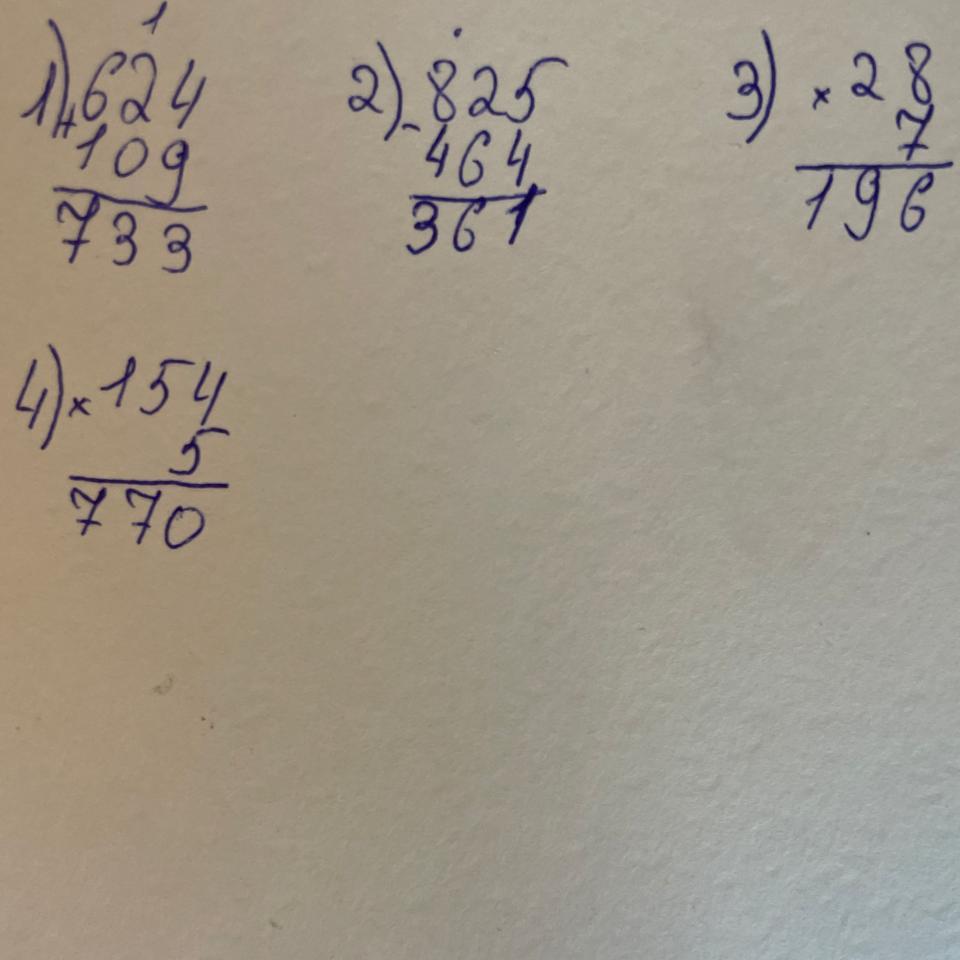 1
1) + 624
109
733
2) - 825
464
361
3) × 28
7
196
4) × 154
5
770